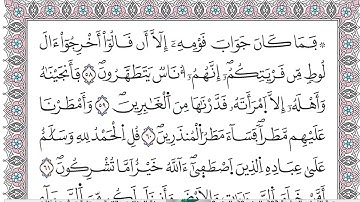 ۞ فَمَا كَانَ جَوَابَ قَوْمِهِۦٓ إِلَّآ أَن قَالُوٓا۟ أَخْرِجُوٓا۟ ءَالَ
لُوطٍ مِّن قَرْيَتِكُمُۥٓ إِنَّهُمُۥٓ أُنَاسٌ يَتَطَهَّرُونَ ٥٨ فَأَنجَيْنَٰهُ
وَأَهْلَهُۥٓ إِلَّا ٱمْرَأَتَهُۥ قَدَّرْنَٰهَا مِنَ ٱلْغَٰبِرِينَ ٥٩ وَأَمْطَرْنَا
عَلَيْهِم مَّطَرًا فَسَآءَ مَطَرُ ٱلْمُنذَرِينَ ٦٠ قُلِ ٱلْحَمْدُ لِلَّهِ وَسَلَٰمٌ
عَلَىٰ عِبَادِهِ ٱلَّذِينَ ٱصْطَفَىٰٓ ءَآللَّهُ خَيْرٌ أَمَّا تُشْرِكُونَ ٦١